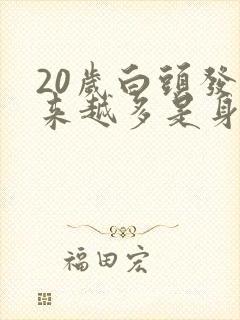 20歲白頭發
來越多是身
福田宏